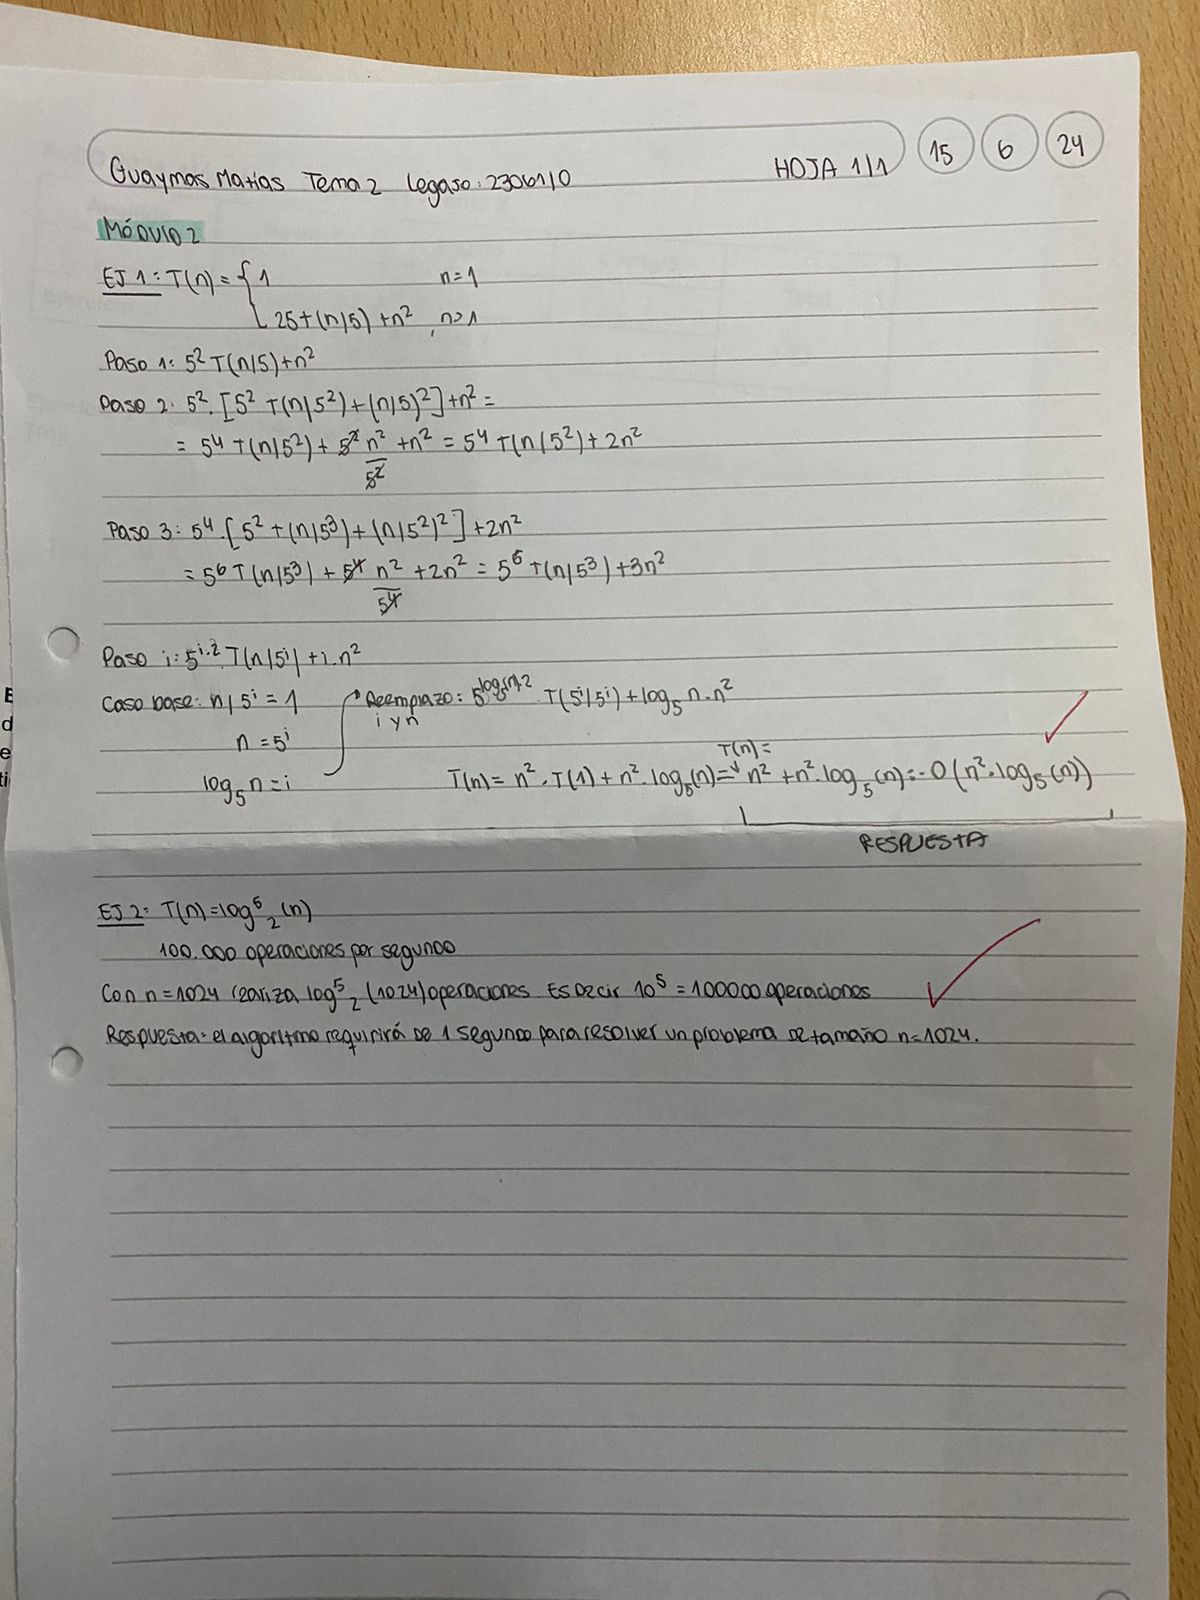 Guaymas Matías Tema 2 Legajo: 23061/0 HOJA 1/1 15 6 24
MÓDULO 2
EJ 1: T(n) = { 1 n=1
25T(n/5) + n² , n>1
Paso 1: 5² T(n/5)+n²
Paso 2: 5². [5² T(n/5²)+(n/5)²]+n² =
= 5⁴ T(n/5²) + 5² n²/5² + n² = 5⁴ T(n/5²) + 2n²
Paso 3: 5⁴.[5² T(n/5³)+(n/5²)²]+2n²
= 5⁶ T(n/5³) + 5⁴ n²/5⁴ + 2n² = 5⁶ T(n/5³)+3n²
Paso i: 5^i.2 T(n/5^i) + i.n²
Caso base: n/5^i = 1 Reemplazo: 5^log5(n).2 . T(5^i/5^i) + log₅ n.n²
i y n
n = 5^i
T(n)=
log₅ n = i T(n) = n².T(1) + n².log₅(n) = n² + n².log₅(n) = O(n².log₅(n))
RESPUESTA
EJ 2: T(n) = log⁵₂(n)
100.000 operaciones por segundo
Con n=1024 realiza log⁵₂(1024) operaciones Es decir 10⁵ = 100000 operaciones
Respuesta: el algoritmo requirirá de 1 segundo para resolver un problema de tamaño n=1024.
E
d
e
ti